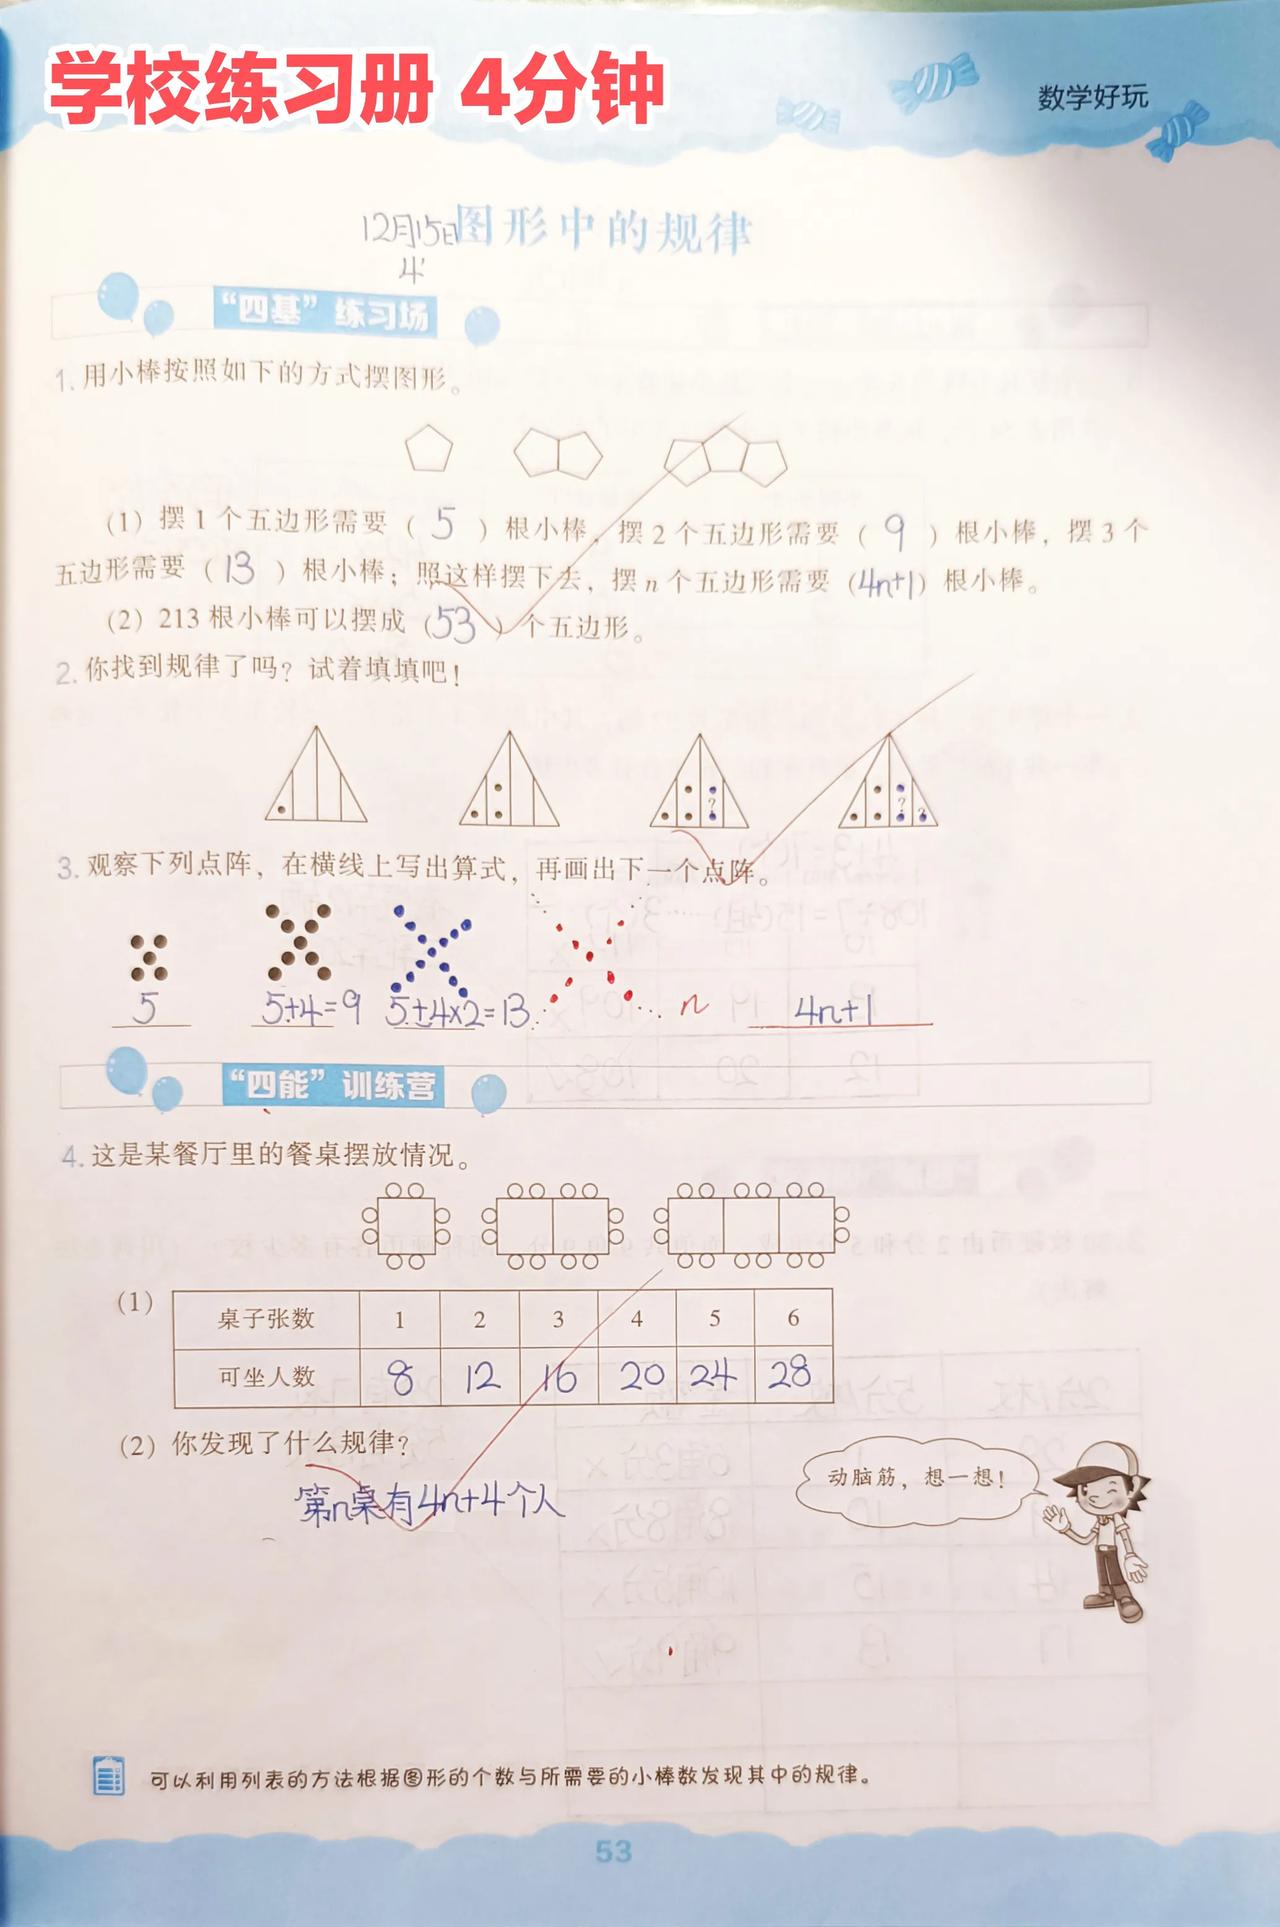 学校练习册 4分钟
数学好玩
12月15日
图形中的规律
4'
“四基”练习场
1. 用小棒按照如下的方式摆图形。
(1) 摆1个五边形需要（5）根小棒，摆2个五边形需要（9）根小棒，摆3个
五边形需要（13）根小棒；照这样摆下去，摆n个五边形需要（4n+1）根小棒。
(2) 213根小棒可以摆成（53）个五边形。
2. 你找到规律了吗？试着填填吧！
? ? ?
3. 观察下列点阵，在横线上写出算式，再画出下一个点阵。
5 5+4=9 5+4×2=13 … n 4n+1
“四能”训练营
4. 这是某餐厅里的餐桌摆放情况。
(1) 桌子张数 1 2 3 4 5 6
可坐人数 8 12 16 20 24 28
(2) 你发现了什么规律？
动脑筋，想一想！
第n桌有4n+4个人
可以利用列表的方法根据图形的个数与所需要的小棒数发现其中的规律。
53